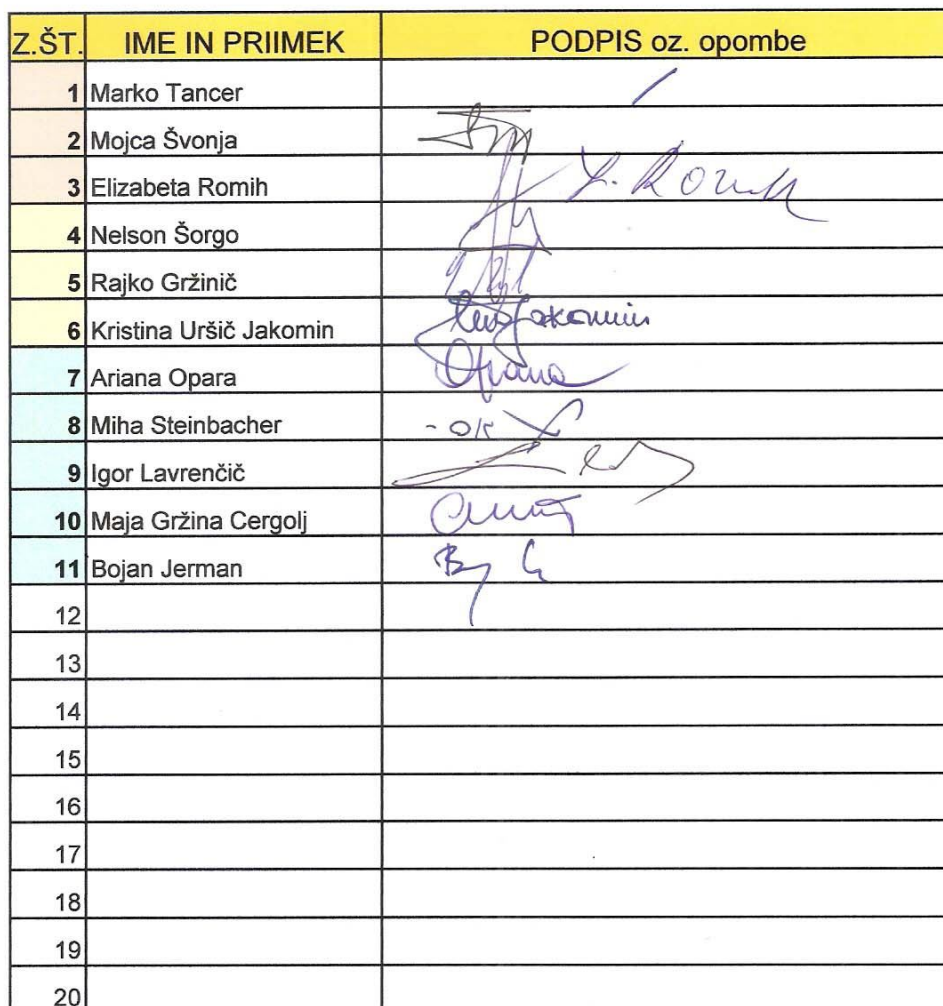 Z.ŠT. IME IN PRIIMEK PODPIS oz. opombe
1 Marko Tancer /
2 Mojca Švonja
3 Elizabeta Romih
4 Nelson Šorgo
5 Rajko Gržinič
6 Kristina Uršič Jakomin Jakomin
7 Ariana Opara
8 Miha Steinbacher - OK
9 Igor Lavrenčič
10 Maja Gržina Cergolj
11 Bojan Jerman
12
13
14
15
16
17
18
19
20